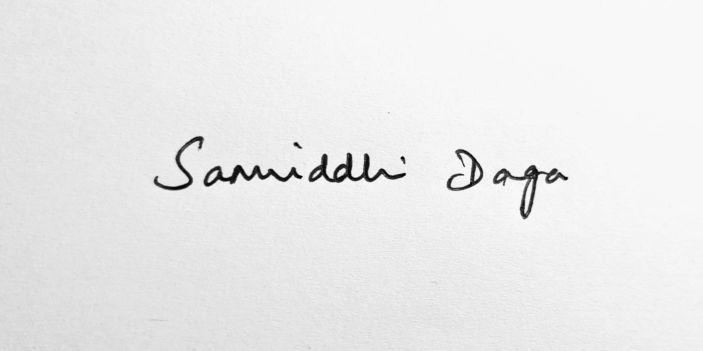 Samriddhi Daga